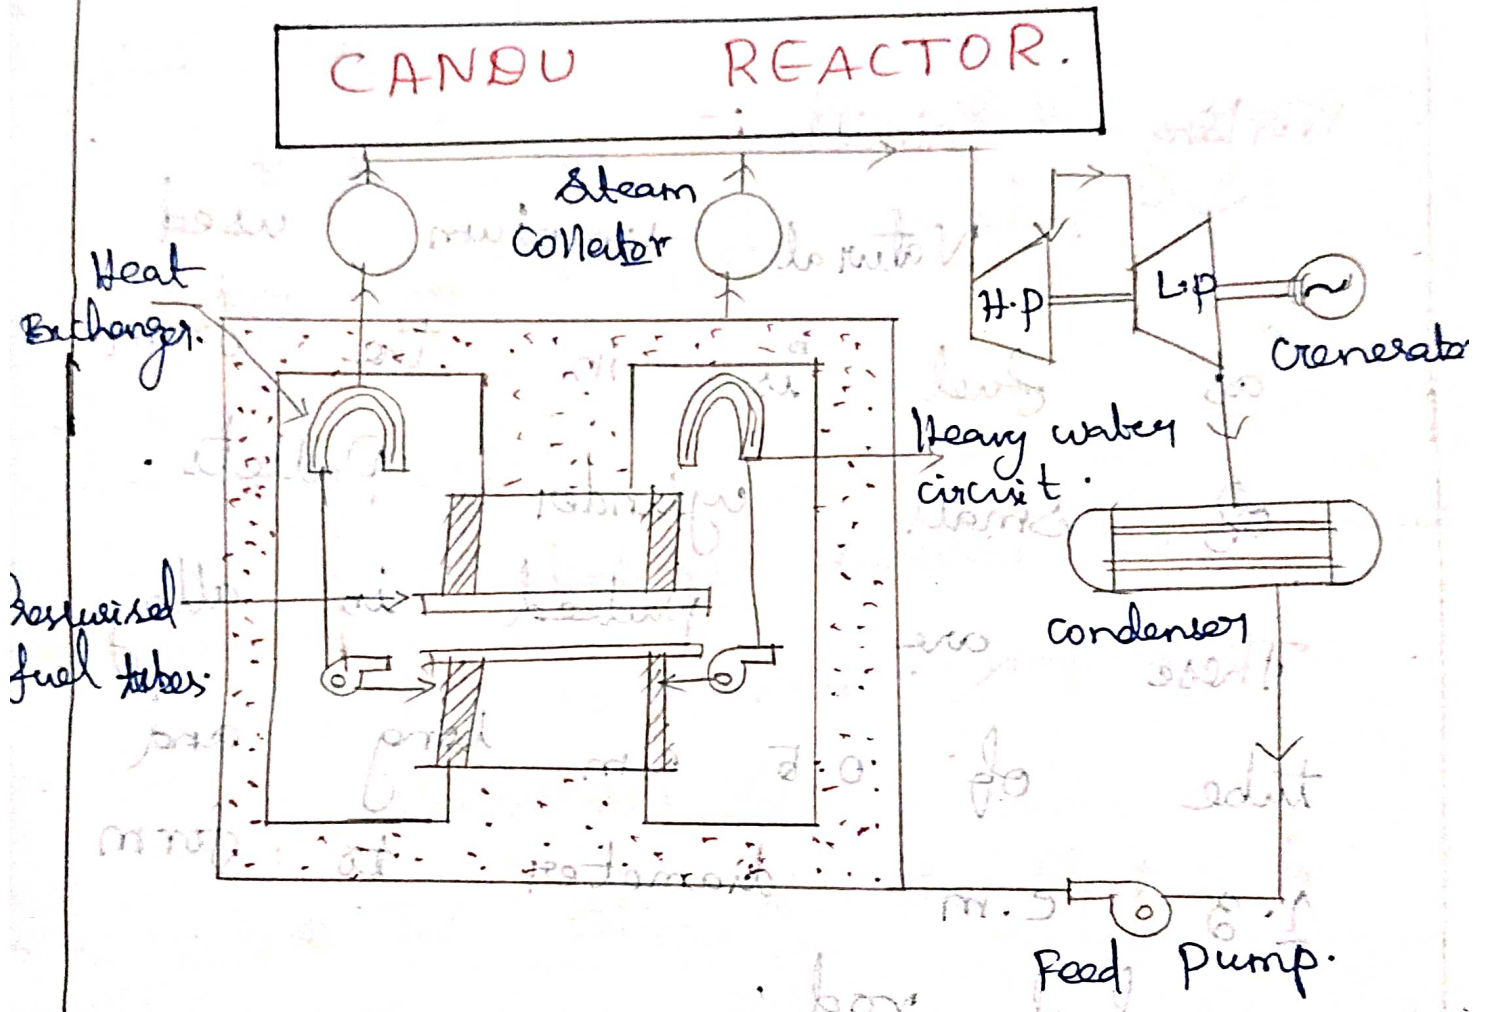 CANDU REACTOR.
Steam
Collector
Heat
Exchanger.
H.P
L.P
Generator
Heavy water
circuit.
Pressurised
fuel tubes.
condenser
Feed Pump.